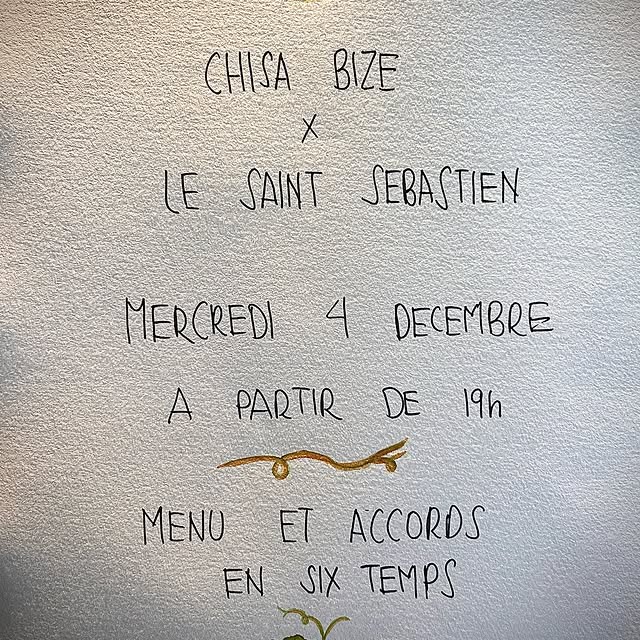 CHISA BIZE
X
LE SAINT SEBASTIEN
MERCREDI 4 DECEMBRE
A PARTIR DE 19h
MENU ET ACCORDS
EN SIX TEMPS